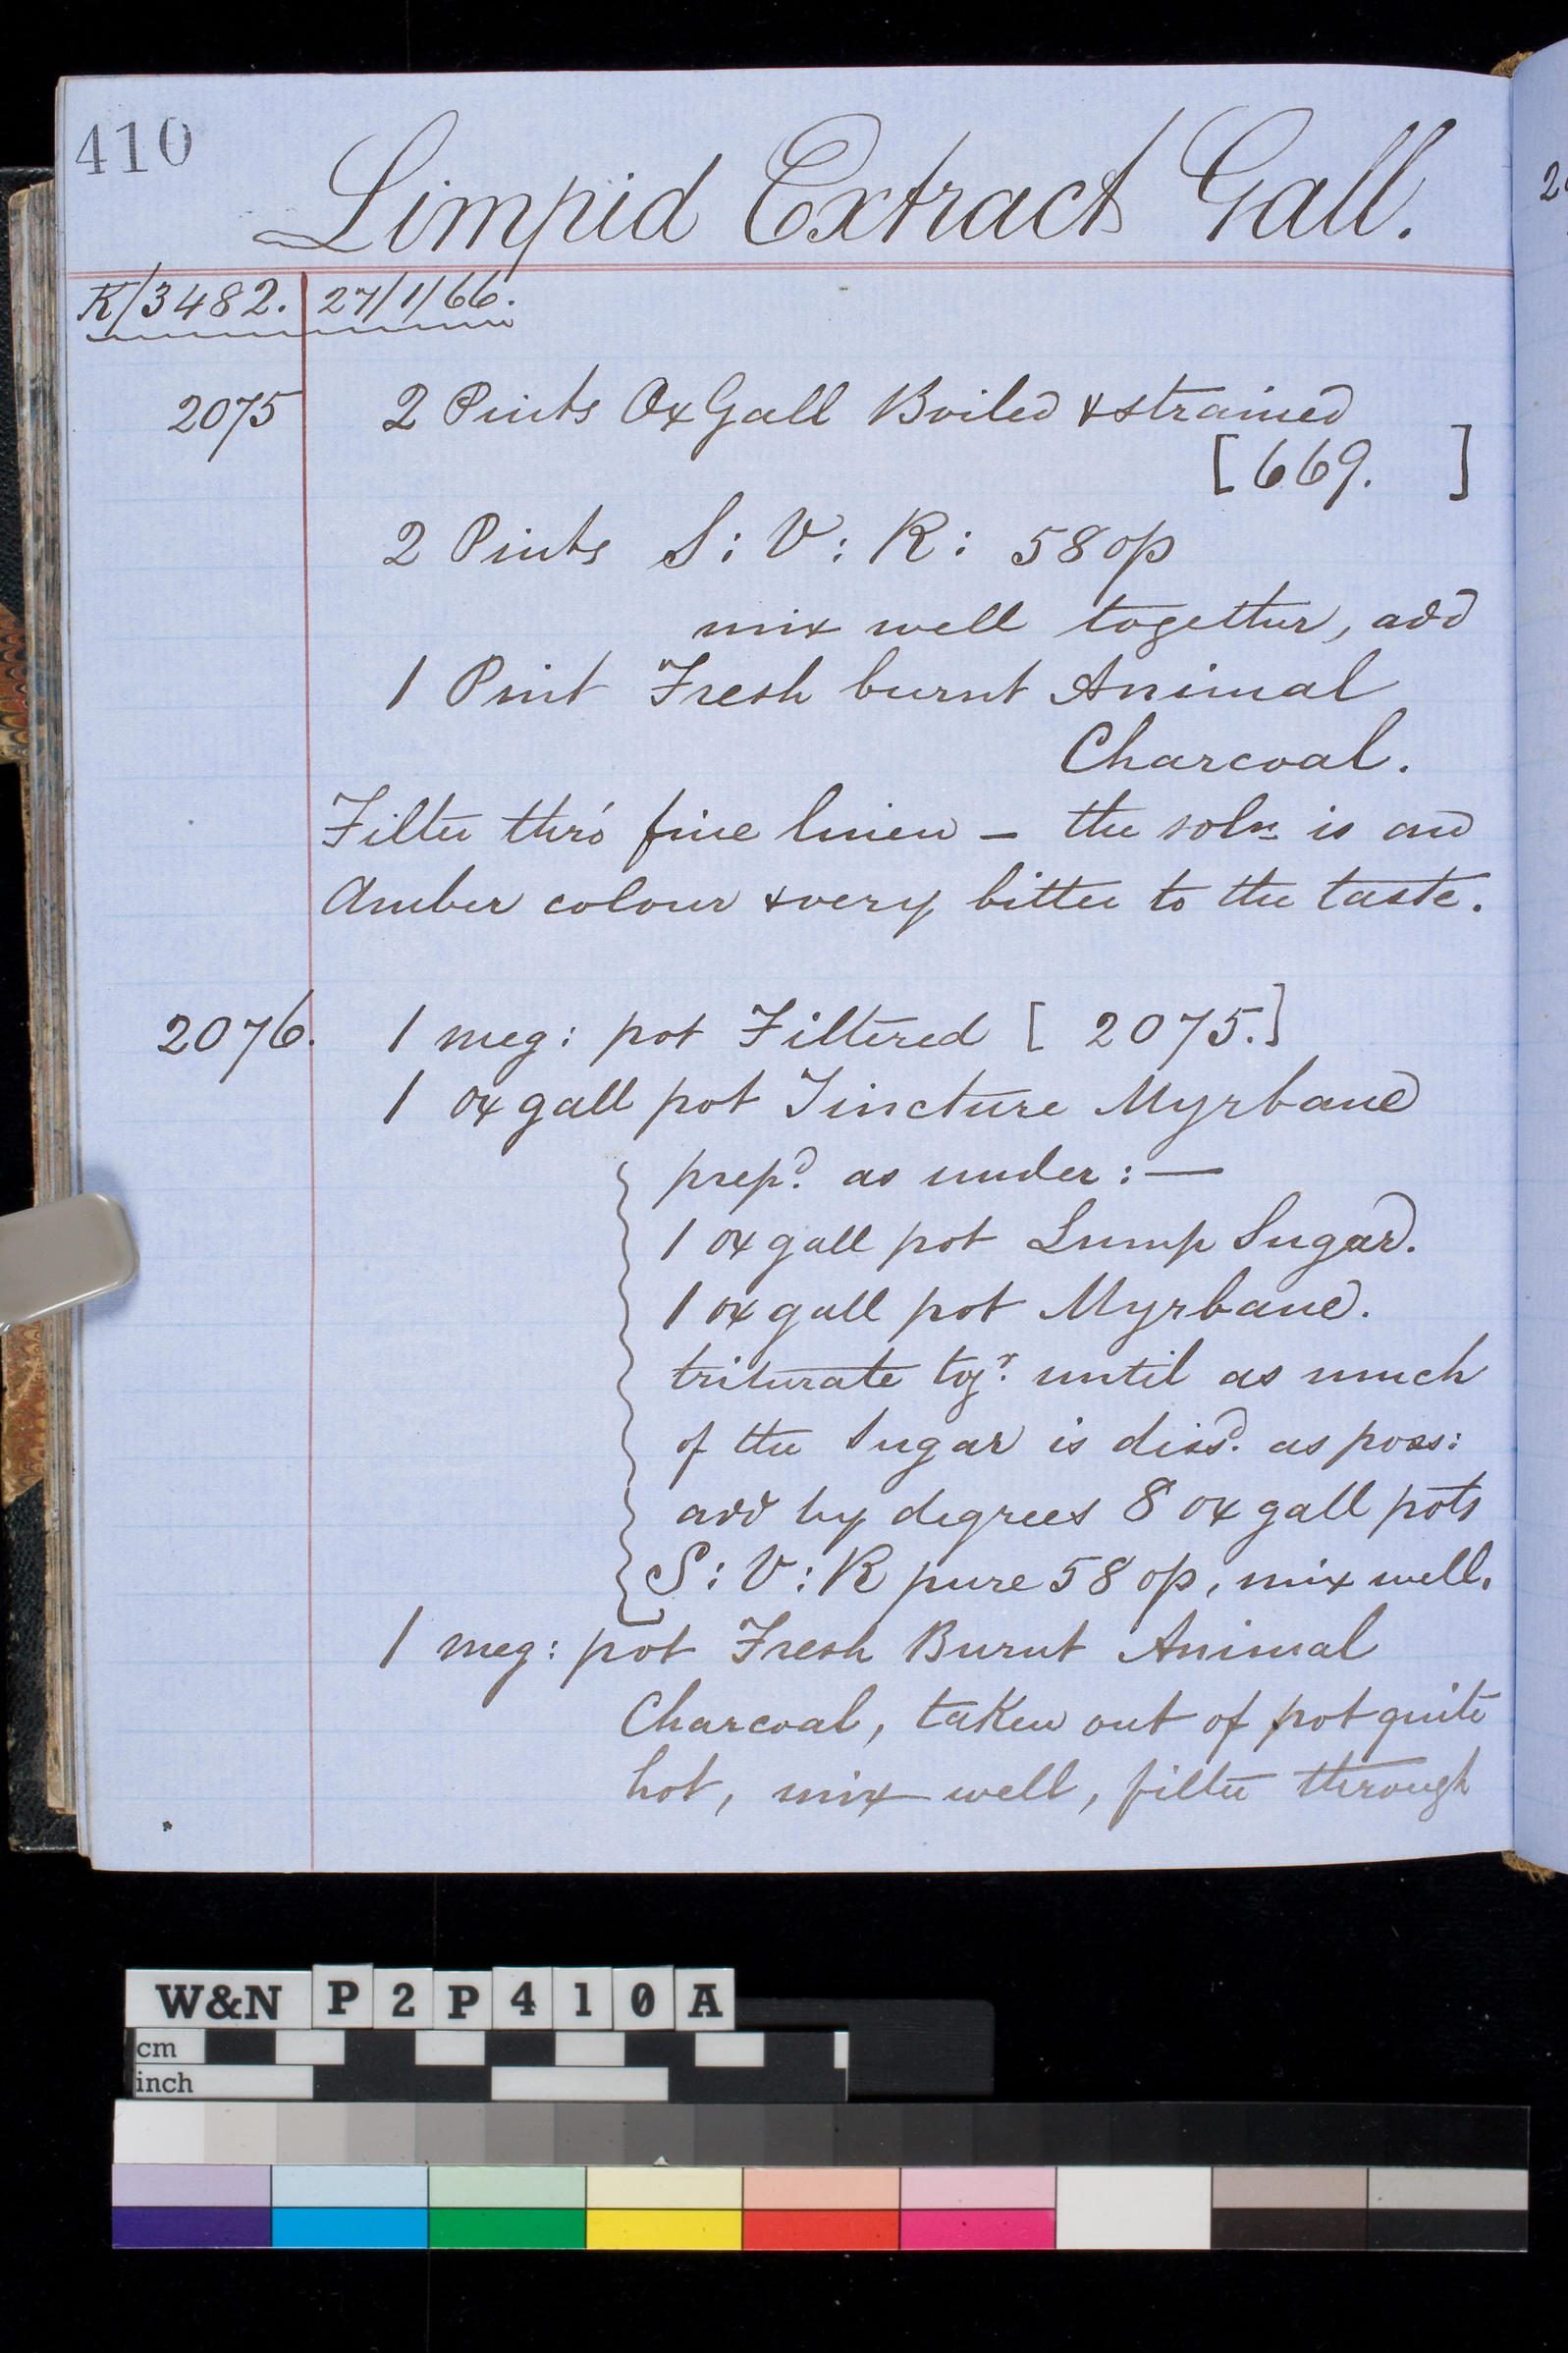 410
Limpid Extract Gall.
K/3482. 27/1/66.
2075 2 Pints Ox Gall Boiled & strained
[669. ]
2 Pints S: V: R: 58 op
mix well together, add
1 Pint Fresh burnt Animal
Charcoal.
Filter thro' fine linen – the soln is an
Amber colour & very bitter to the taste.
2076. 1 meg: pot Filtered [2075.]
1 ox gall pot Tincture Myrbane
prepd. as under: —
1 ox gall pot Lump Sugar.
1 ox gall pot Myrbane.
triturate togr. until as much
of the Sugar is dissd. as poss:
add by degrees 8 ox gall pots
S: V: R pure 58 op, mix well.
1 meg: pot Fresh Burnt Animal
Charcoal, taken out of pot quite
hot, mix well, filter through
W&N P2P410A
cm
inch